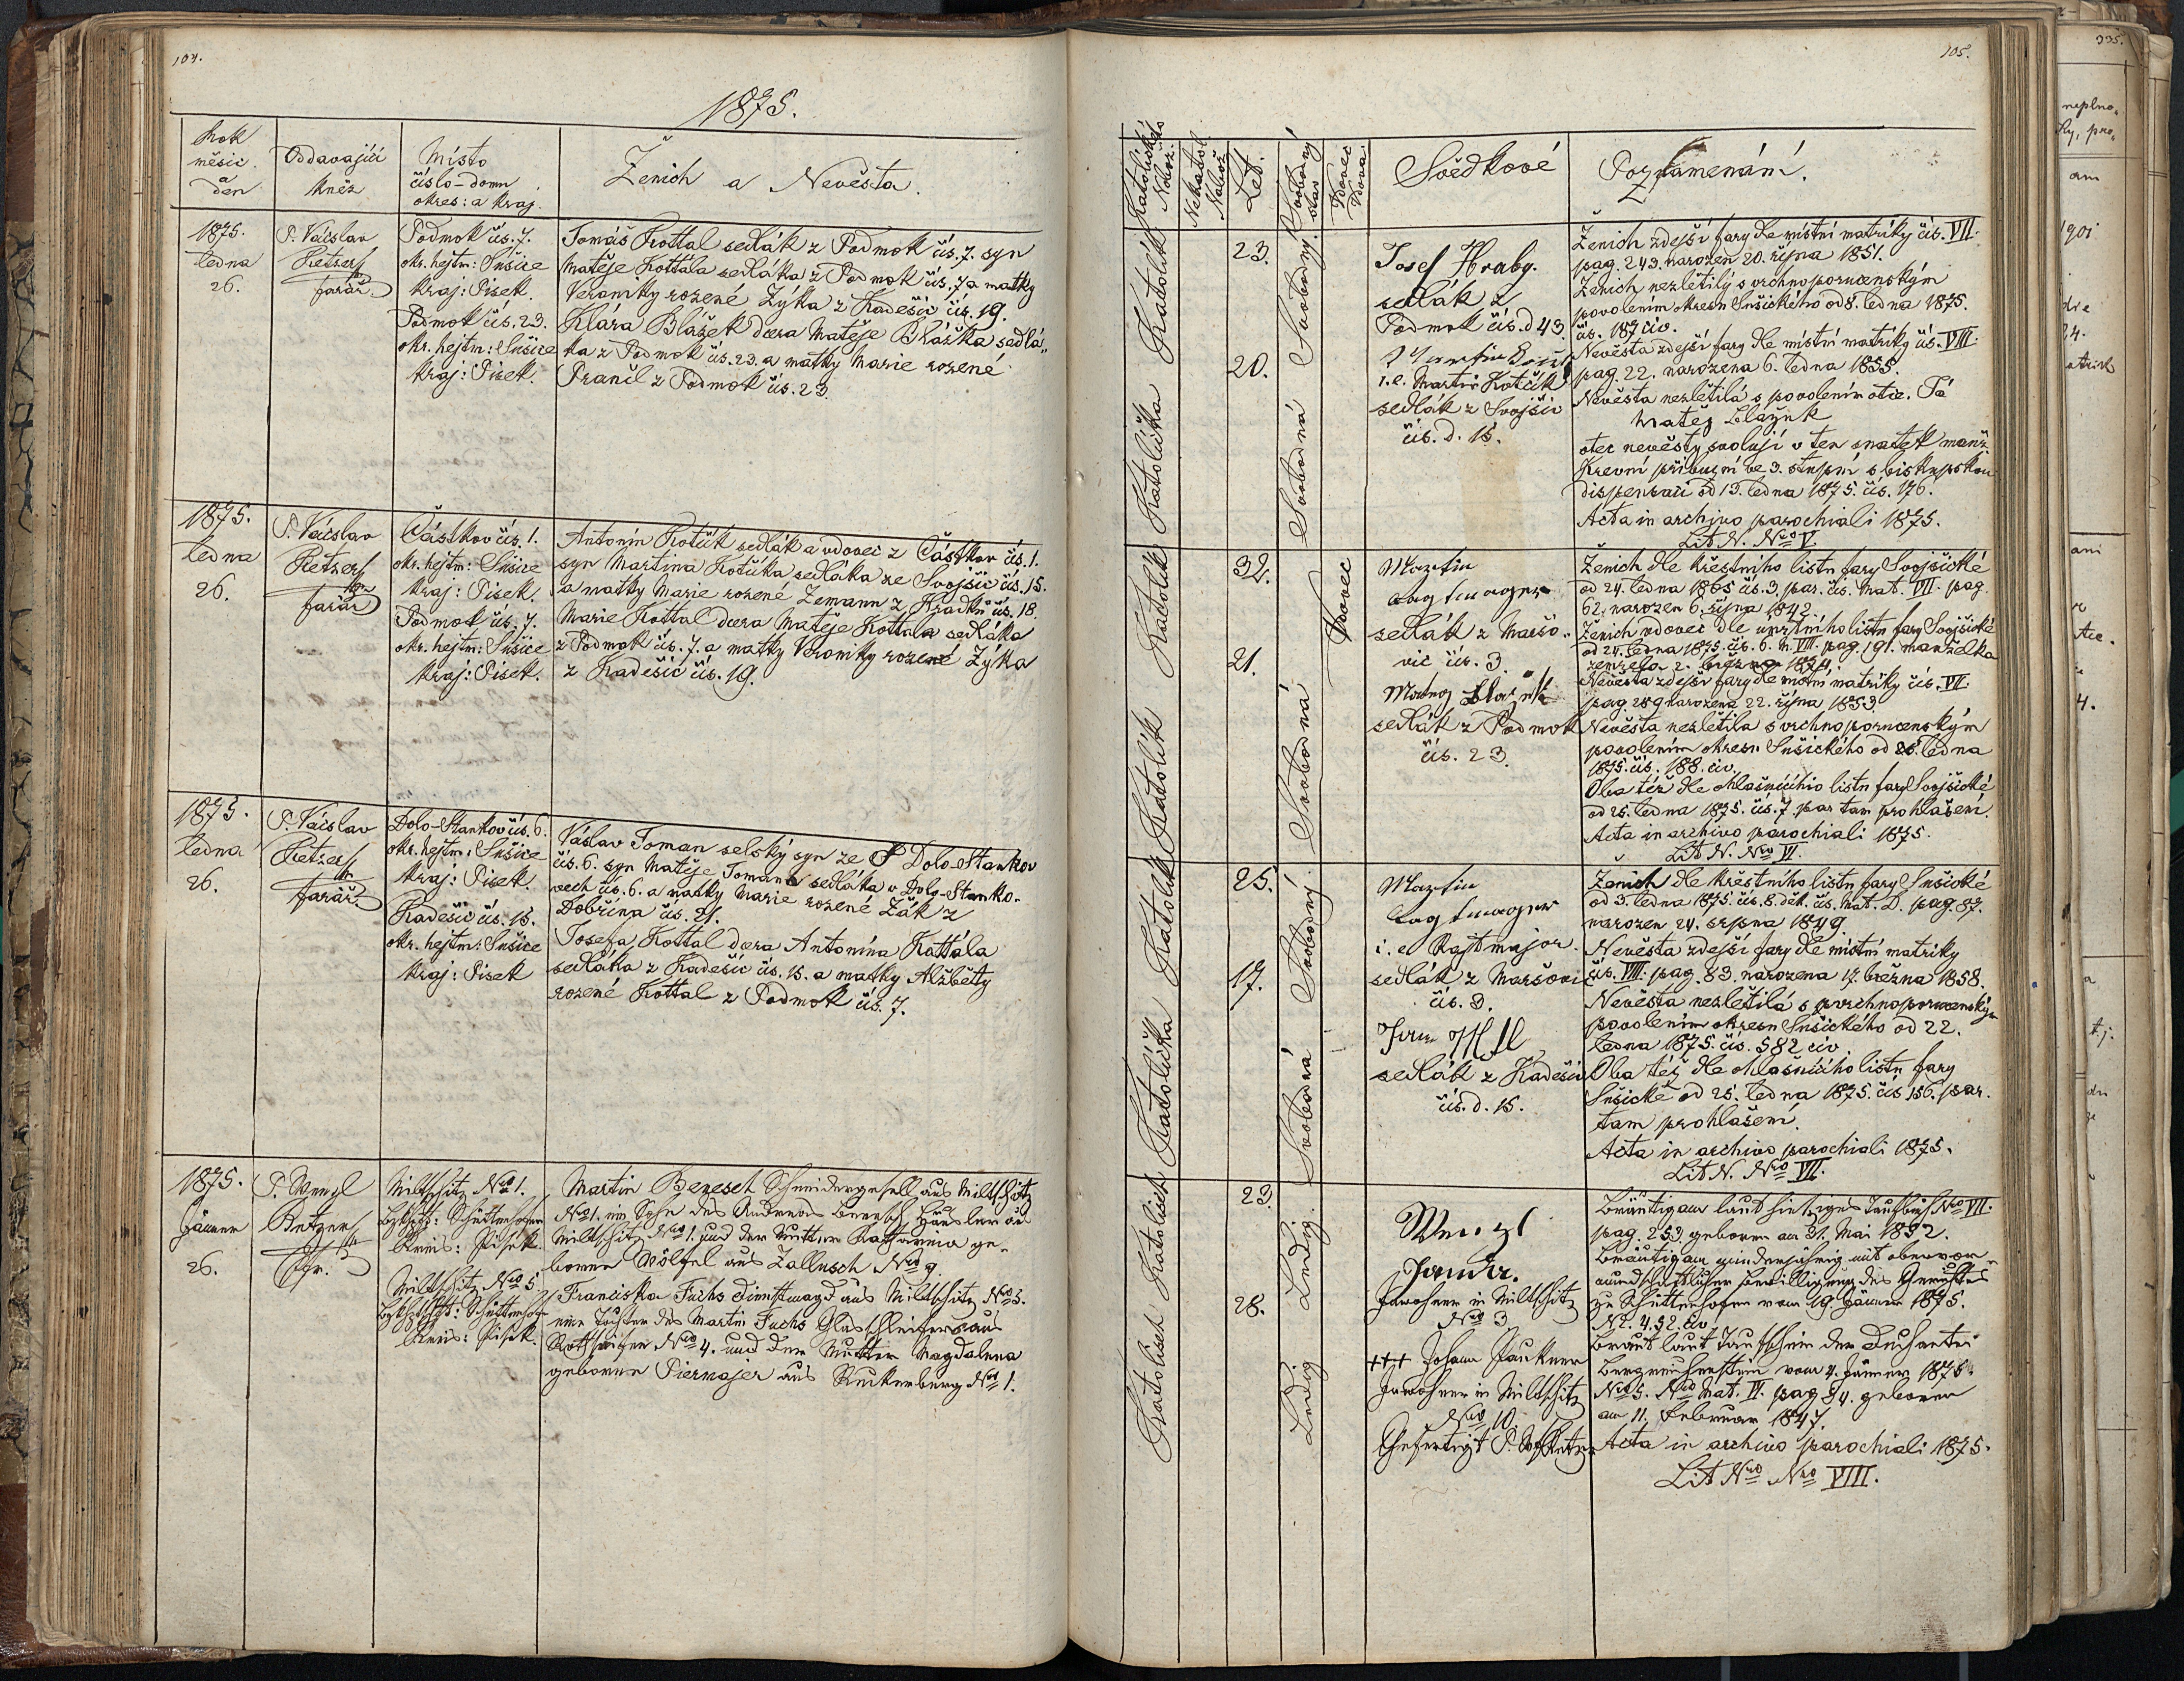 104.
1875.
Rok
měsíc
a
den
Oddavající
kněz
Místo
číslo-domu
okres: a kraj.
Ženich a Nevěsta.
1875.
ledna
26.
P. Václav
Retzer
farář.
Podmok čís. 7.
okr. hejtm: Sušice
kraj: Písek.
Podmok čís. 23.
okr. hejtm: Sušice
kraj: Písek.
Tomáš Kottal sedlák z Podmok čís. 7. syn
Matěje Kottala sedláka z Podmok čís. 7 a matky
Veroniky rozené Zýka z Kadešic čís. 19.
Klára Blažek dcera Matěje Blažka sedlá„
ka z Podmok čís. 23. a matky Marie rozené
Prančl z Podmok čís. 23.
1875.
ledna
26.
P. Václav
Retzer
farář
Částkov čís. 1.
okr. hejtm: Sušice
kraj: Písek.
Podmok čís. 7.
okr. hejtm: Sušice
kraj: Písek.
Antonín Kotčík sedlák a vdovec z Částkov čís. 1.
syn Martina Kotčíka sedláka ze Svojšic čís. 15.
a matky Marie rozené Zemann z Hradku čís. 18.
Marie Kottal dcera Matěje Kottala sedláka
z Podmok čís. 7. a matky Veroniky rozené Zýka
z Kadešic čís. 19.
1875.
ledna
26.
P. Václav
Retzer
farář.
Dolo-Stankov čís. 6.
okr. hejtm: Sušice
kraj: Písek.
Kadešic čís. 15.
okr. hejtm: Sušice
kraj: Písek
Václav Toman selský syn ze Dolo-Stankov
čís. 6. syn Matěje Tomana sedláka v Dolo-Stanko-
vech čís. 6. a matky Marie rozené Žák z
Dobřína čís. 21.
Josefa Kottal dcera Antonína Kottala
sedláka z Kadešic čís. 15. a matky Alžběty
rozené Kottal z Podmok čís. 7.
1875.
Jänner
26.
P. Wenzl
Retzer
Pfr.
Miltschitz Nro 1.
Bzkhptt: Schüttenhofen
Kreis: Pisek.
Miltschitz Nro 5
Bzkhptt: Schüttenhof
Kreis: Pisek.
Martin Benesch Schneidergesell aus Miltschitz
Nro 1. ein Sohn des Andreas Benesch Häusler aus
Miltschitz Nro 1. und der Mutter Katharina ge-
borene Wölfel aus Zallusch Nro 9.
Franciska Fuchs Dienstmagd aus Miltschitz Nro 5.
eine Tochter des Martin Fuchs Glasschleifers aus
Nro 4. und der Mutter Magdalena
geborene Piermajer aus Ruckerberg Nro 1.
105.
Katolické
Nábož.
Nekatol.
Nábož
Let.
Svobodný
Vdovec
Vdova
Svědkové
Poznamenání.
Katolík
Katolička
23.
20.
Svobodný.
Svobodná
Josef Hrabý.
sedlák z
Podmok čís. d 43.
i. e. Martin Kotčík
sedlák z Svojšic
čís. d. 15.
Ženich zdejší fary dle místní matriky čís. VII.
pag. 243. narozen 20. října 1851.
Ženich nezletilý s vrchnoporučenským
povolením okresu Sušického od 8. ledna 1875.
čís. 187 civ.
Nevěsta zdejší fary dle místní matriky čís. VIII.
pag. 22. narozena 6. ledna 1855.
Nevěsta nezletilá s povolením otce. Já
Matěj Blažek
otec nevěsty svolují v ten snatek manž.
Krevní příbuzní ve 3. stupni s biskupskou
dispensací od 13. ledna 1875. čís. 176.
Acta in archivo parochiali 1875.
Lit N. Nro V.
Katolík
Katolík
32.
21.
Vdovec
Svobodná
Martin
sedlák z Maršo„
vic čís. 3.
sedlák z Podmok
čís. 23.
Ženich dle křestního listu fary Svojšické
od 24. ledna 1865 čís. 3. par. čís. Mat. VII. pag.
62. narozen 6. října 1842.
Ženich vdovec dle úmrtního listu fary Svojšické
od 24. ledna 1875. čís. 6. m. VIII. pag. 191. manželka
zemřela 2. března 1874.
Nevěsta zdejší fary dle místní matriky čís. VII.
pag. 289 narozena 22. října 1853.
Nevěsta nezletilá s vrchnoporučenským
povolením okresu Sušického od 26. ledna
1875. čís. 188. civ.
Oba též dle ohlašujícího listu fary Svojšické
od 25. ledna 1875. čís. 7. par tam prohlášení.
Acta in archivo parochiali 1875.
Lit N. Nro VI.
Katolík
Katolička
25.
17.
Svobodný
Svobodná
Martin
i. e. Rajtmajor.
sedlák z Maršovic
čís. 3.
sedlák z Kadešic
čís. d. 15.
Ženich dle křestního listu fary Sušické
od 3. ledna 1875. čís. 8. děk. čís. Mat. D. pag. 87.
narozen 24. srpna 1849.
Nevěsta zdejší fary dle místní matriky
čís. VIII. pag. 83. narozena 17. března 1858.
Nevěsta nezletilá s vrchnoporučenským
povolením okresu Sušického od 22.
ledna 1875. čís. 582 civ.
Oba též dle ohlašujícího listu fary
Sušické od 25. ledna 1875. čís 156. par.
tam prohlášení.
Acta in archivo parochiali 1875.
Lit N. Nro VII.
Katolisch
Katolisch
23.
28.
Ledig.
Ledig
Wenzl
Janda.
Inwohner in Miltschitz
Nro 3
+++ Johann Paukner
Inwohner in Miltschitz
Nro 10.
Gefertigt P. W. Retzer
Bräutigam laut hiesiges Taufbuch Nro VII.
pag. 253. geboren am 31. Mai 1852.
Bräutigam minderjährig mit obervor-
mundschaftlicher Bewilligung des Gerichtes
zu Schüttenhofen vom 19. Jänner 1875.
Nr. 452. civ.
Braut laut Taufschein der Dechantei
Bergreichenstein vom 4. Jänner 1875.
Nro 5. Nro Mat. IV. pag 84. geboren
am 11. Februar 1847.
Acta in archivo parochiali 1875.
Lit Nro Nro VIII.
335.